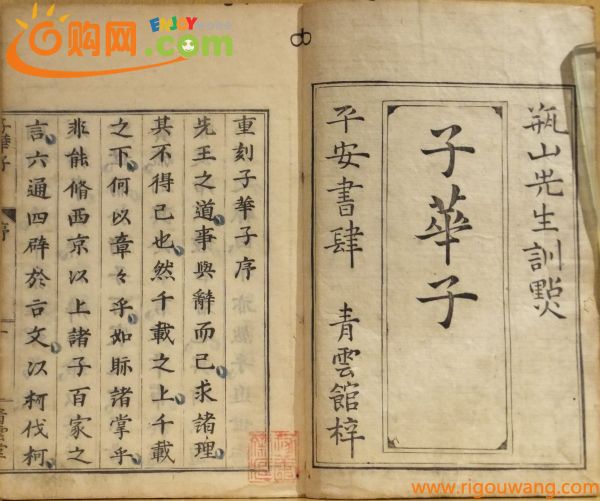 日购网
ENJOY
.com
瓶山先生訓點
子華子
平安書肆 青雲館梓
重刻子華子序
先王之道事與辭而已求諸理
其不得已也然千載之上千載
之下何以章々乎如眎諸掌乎
非能脩西京以上諸子百家之
言六通四辟於古文以柯伐柯
子華子
序
一
www.rigouwang.com